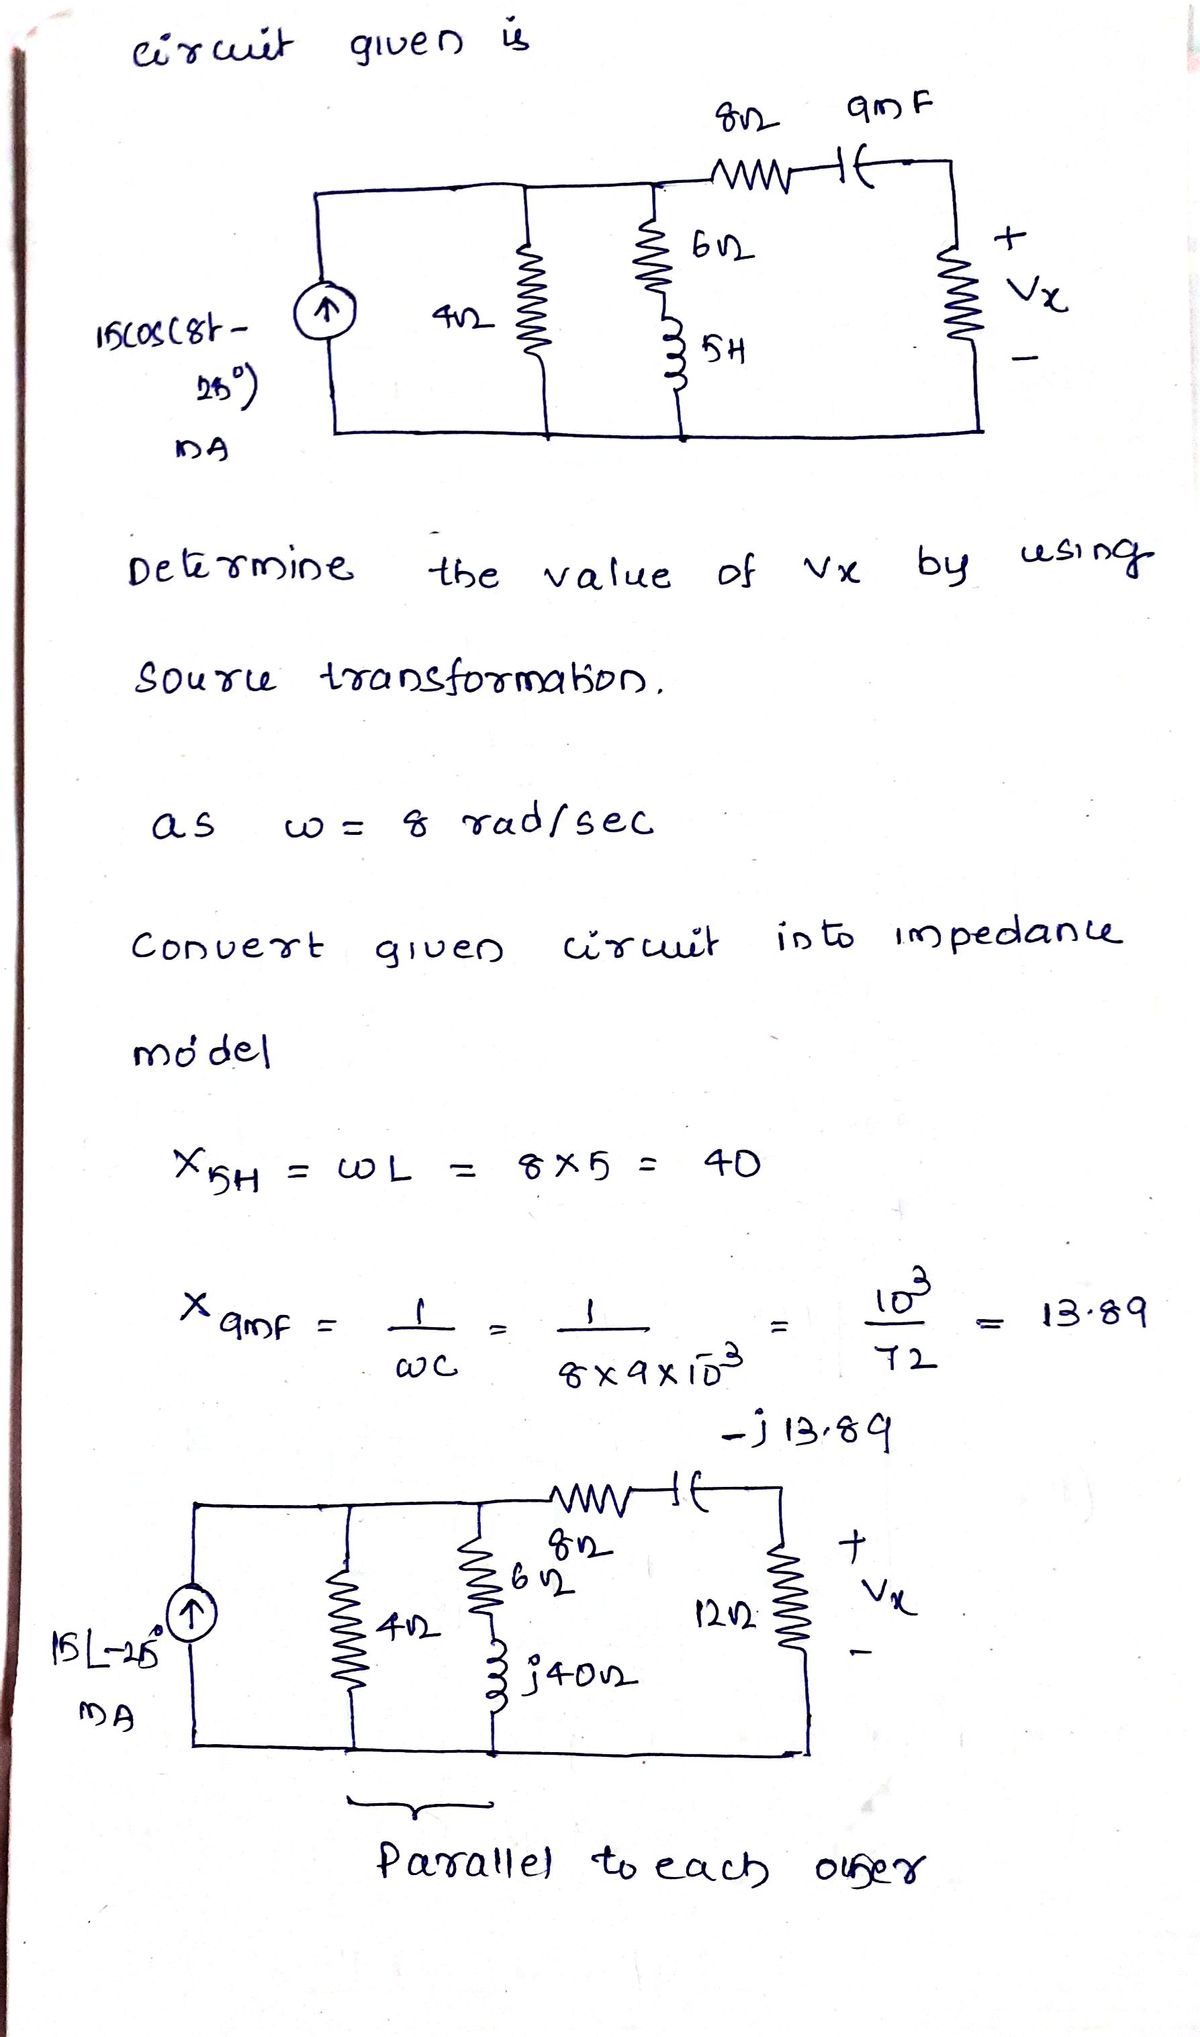 circuit given is
8Ω 9mF
6Ω
+
Vx
15cos(8t-
4Ω
5H
-
25°)
mA
Determine the value of Vx by using
Source transformation.
as ω = 8 rad/sec
Convert given circuit into impedance
model
X5H = ωL = 8×5 = 40
X9mF = 1/ωC = 1/8×9×10^-3 = 10^3/72 = 13.89
-j13.89
8Ω
+
6Ω
Vx
12Ω
4Ω
15∠-25°
-
j40Ω
mA
Parallel to each other